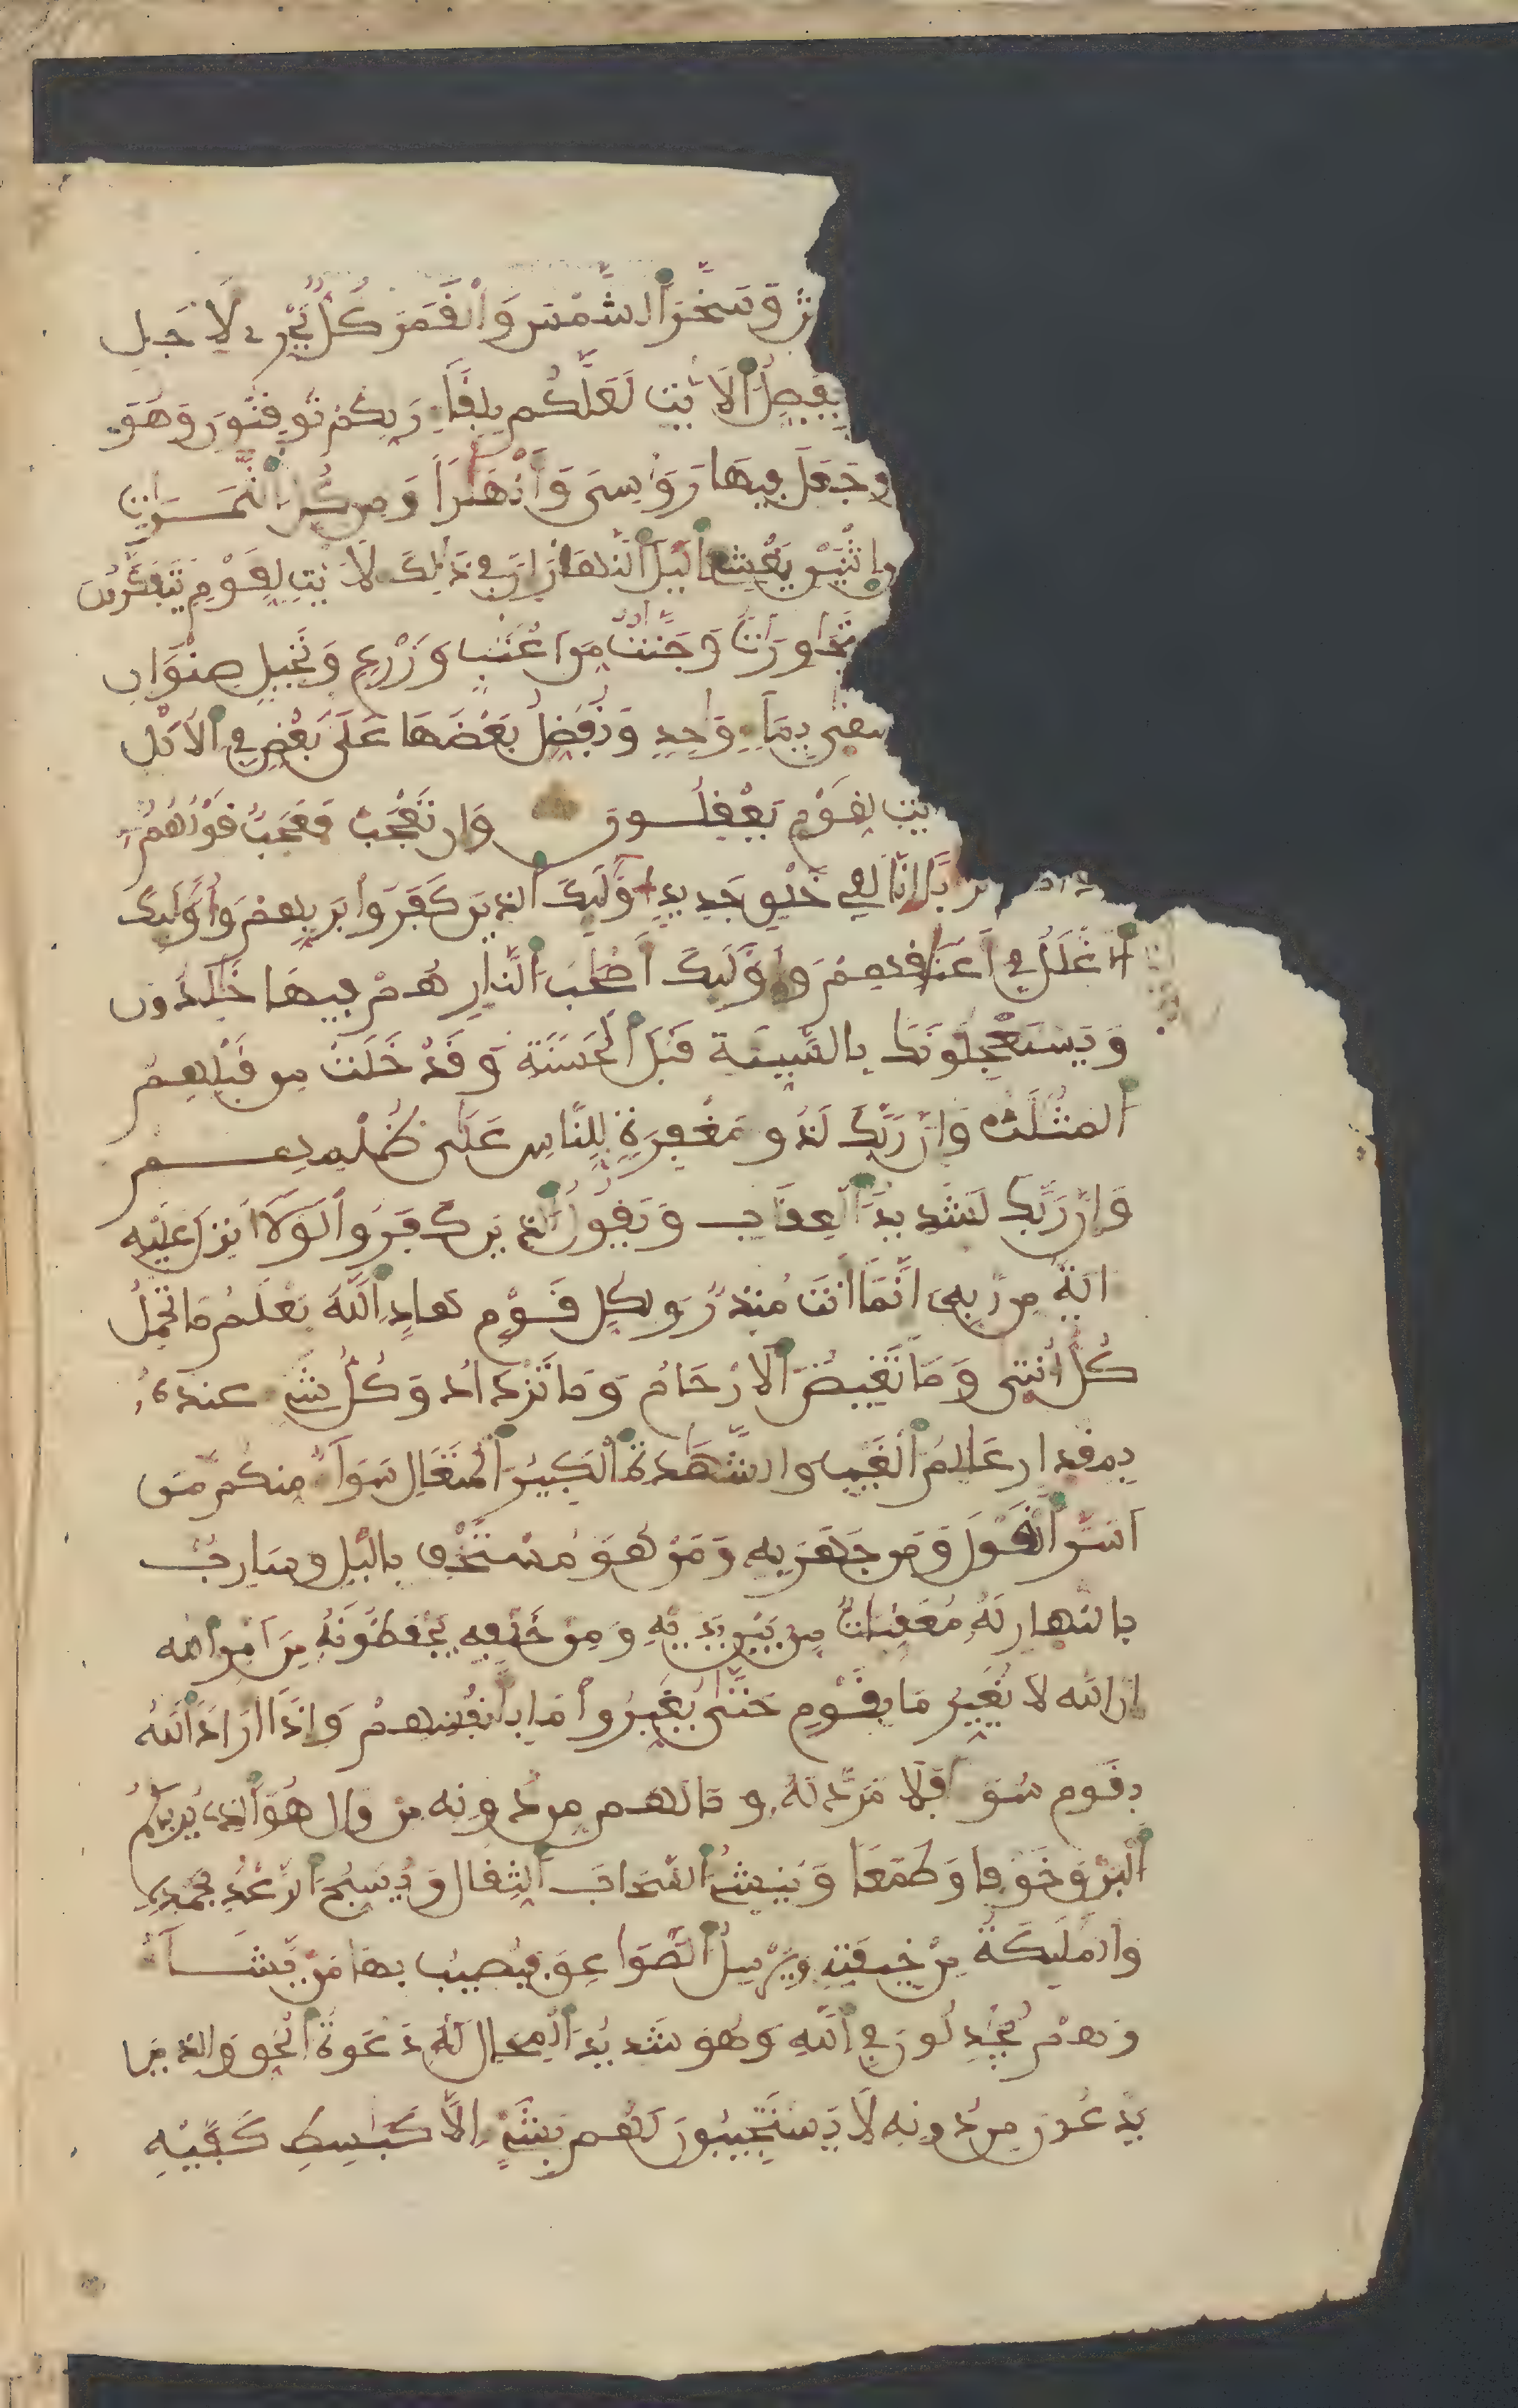 ش وسخر الشمس والقمر كل يجرے لاجل
يفصل الايت لعلكم بلقاء ربكم توقنون وهو
وجعل فيها روسى وانهرا ومن كل الثمرات
اثنين يغشى اليل النهار ان فى ذلك لايت لقوم يتفكرون
متجاورات وجنت من اعنب وزرع ونخيل صنوان
يسقى بماء وحد ونفضل بعضها على بعض فى الاكل
يت لقوم يعقلون وان تعجب فعجب قولهم
تربا انا لفى خلق جديد اولىك الذين كفروا بربهم واولىك
الاغلل فى اعنقهم واولىك اصحب النار هم فيها خلدون
ويستعجلونك بالسيية قبل الحسنة وقد خلت من قبلهم
المثلت وان ربك لذو مغفرة للناس على ظلمهم
وان ربك لشديد العقاب ويقول الذين كفروا لولا انزل عليه
اية من ربه انما انت منذر ولكل قوم هاد الله يعلم ما تحمل
كل انثى وما تغيض الارحام وما تزداد وكل شىء عنده
بمقدار علم الغيب والشهدة الكبير المتعال سواء منكم من
اسر القول ومن جهر به ومن هو مستخف باليل وسارب
بالنهار له معقبات من بين يديه ومن خلفه يحفظونه من امر الله
ان الله لا يغير ما بقوم حتى يغيروا ما بانفسهم واذا اراد الله
بقوم سوءا فلا مرد له وما لهم من دونه من وال هو الذے يريكم
البرق خوفا وطمعا وينشئ السحاب الثقال ويسبح الرعد بحمده
والمليكة من خيفته ويرسل الصواعق فيصيب بها من يشاء
وهم يجدلون فى الله وهو شديد المحال له دعوة الحق والذين
يدعون من دونه لا يستجيبون لهم بشىء الا كبسط كفيه